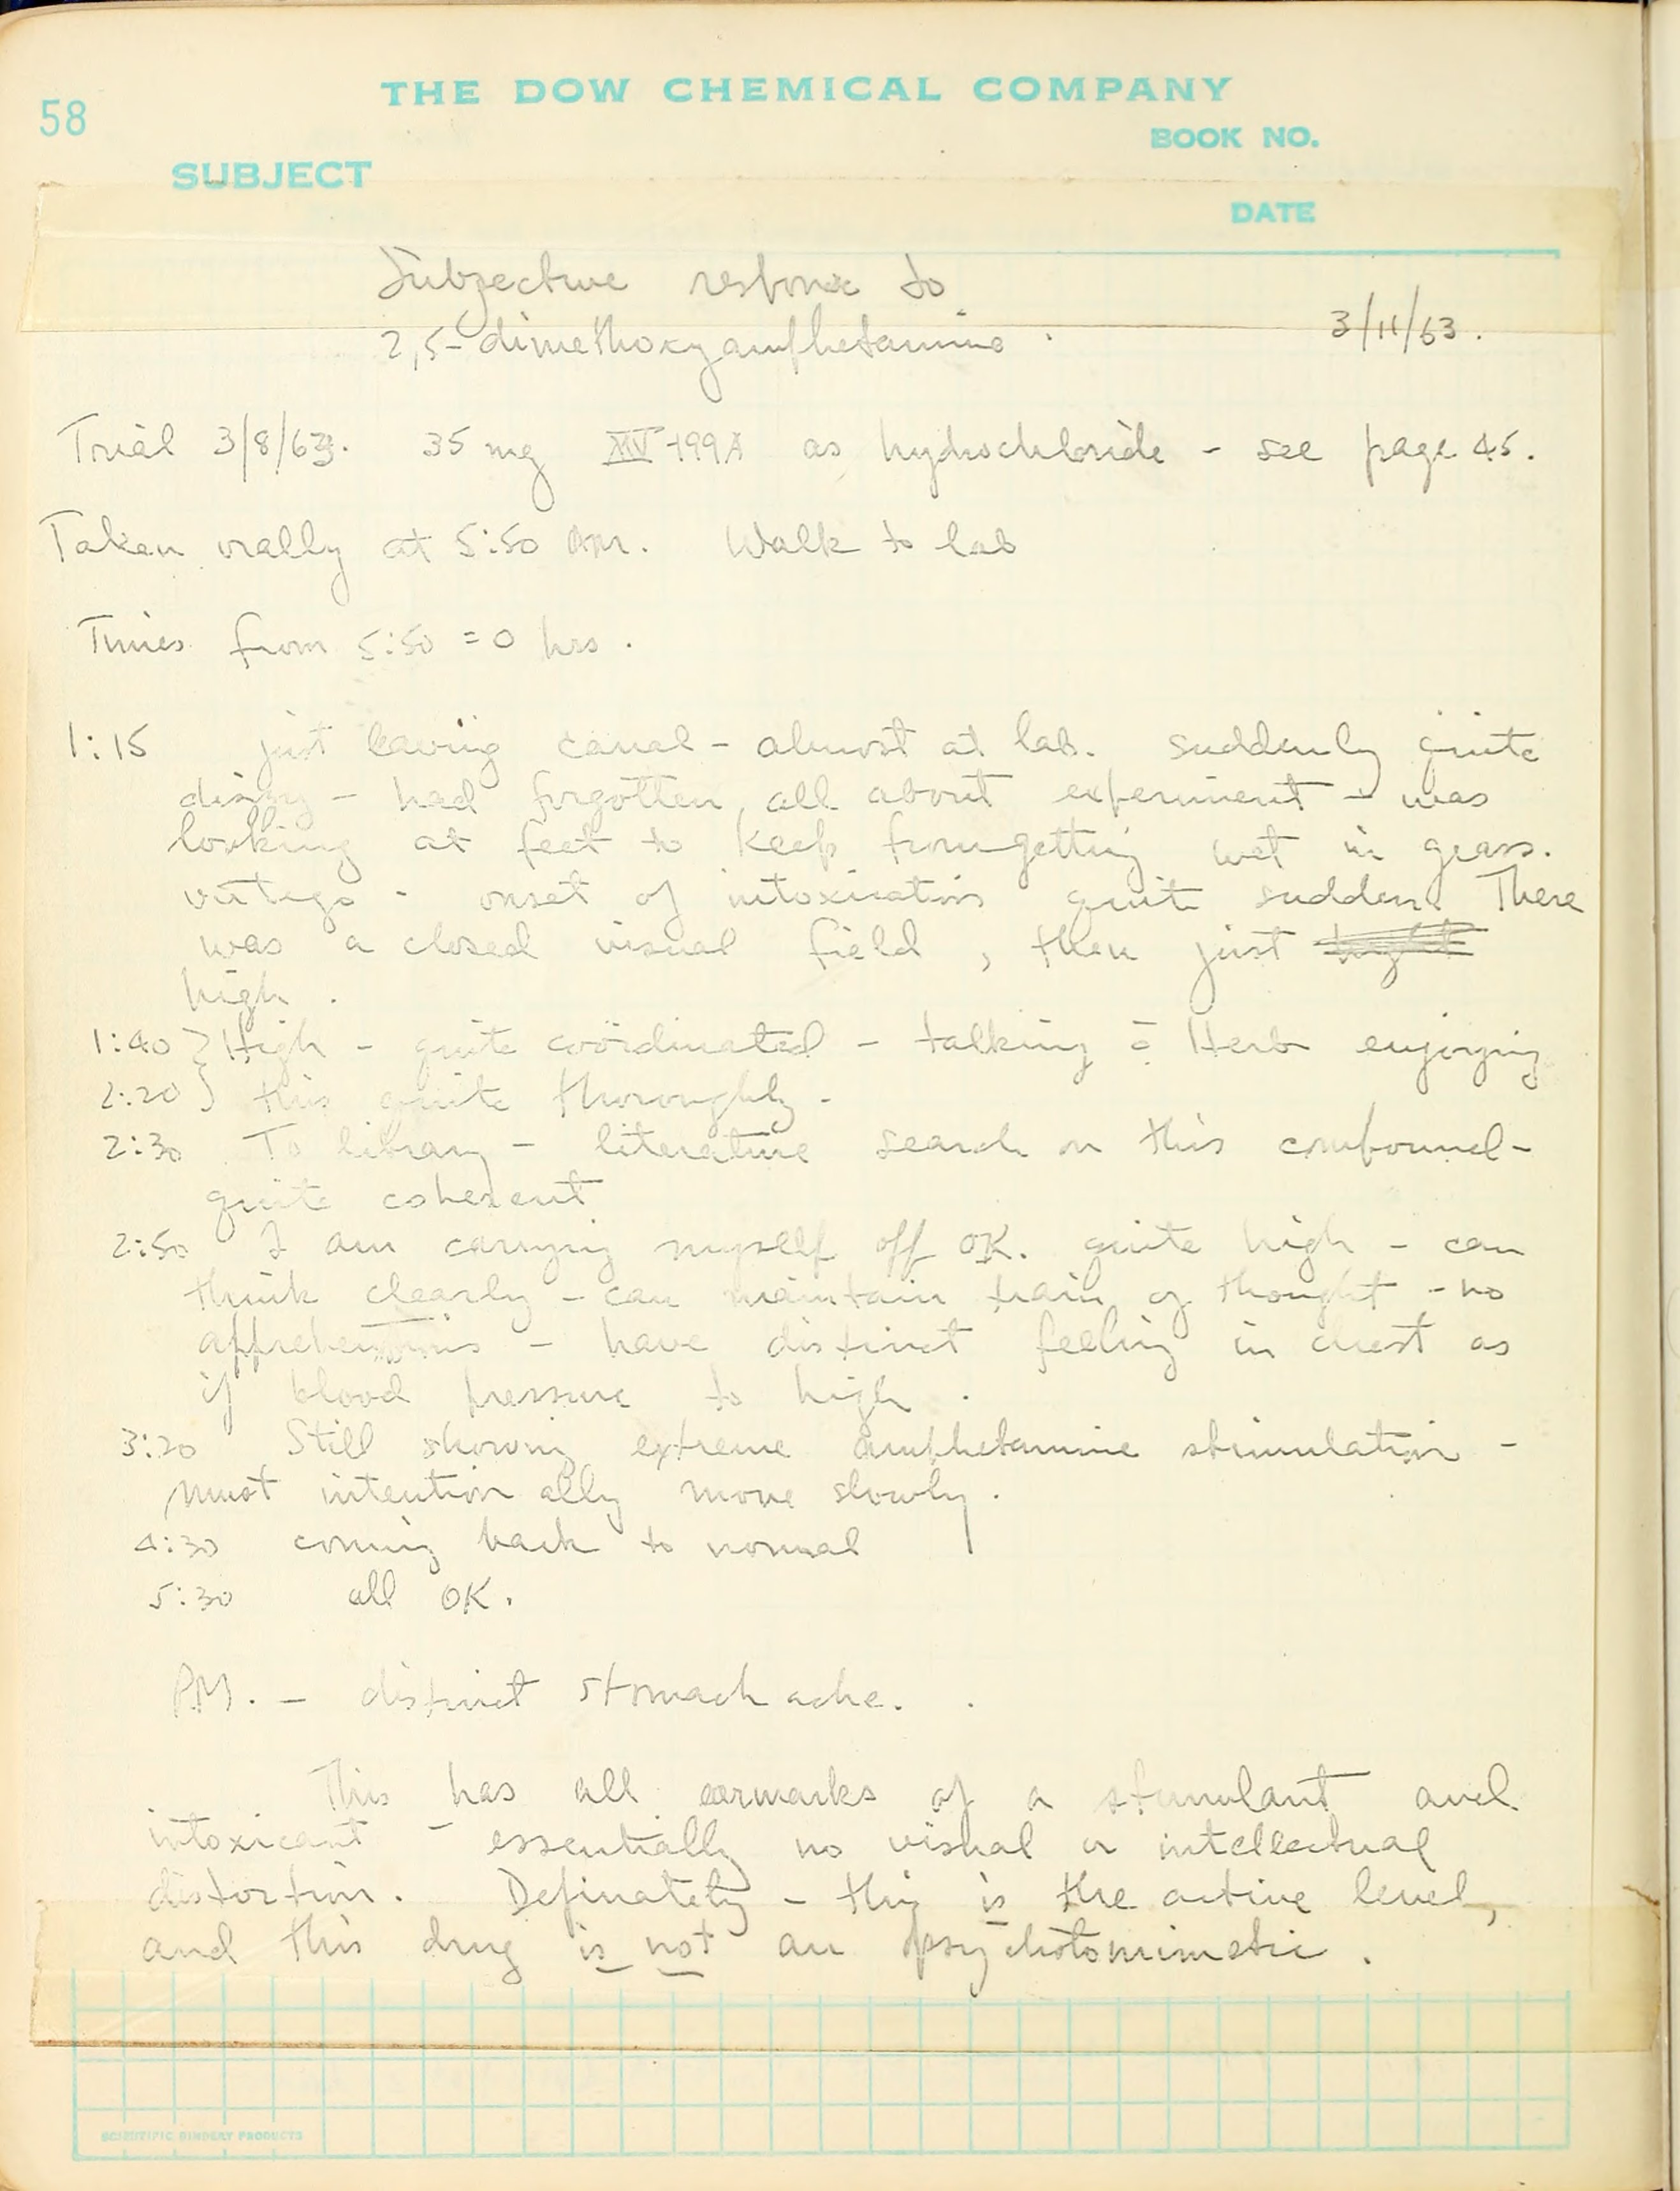 58
THE DOW CHEMICAL COMPANY
BOOK NO.
SUBJECT
DATE
Subjective response to
2,5-dimethoxyamphetamine.
3/11/63.
Trial 3/8/63. 35 mg as hydrochloride - see page 45.
Taken orally at 5:50 AM. Walk to lab
Times from 5:50 = 0 hrs.
1:15 just leaving canal - almost at lab. suddenly quite
dizzy - had forgotten all about experiment - was
looking at feet to keep from getting wet in grass.
vertigo - onset of intoxication quite sudden. There
was a closed visual field, then just
high.
1:40 } High - quite coördinated - talking c̄ Herb enjoying
2:20 } this quite thoroughly.
2:30 To library - literature search on this compound -
quite coherent
2:50 I am carrying myself off OK. quite high - can
think clearly - can maintain train of thought - no
apprehensions - have distinct feeling in chest as
if blood pressure to high.
3:20 Still showing extreme amphetamine stimulation -
must intentionally move slowly.
4:30 coming back to normal
5:30 all OK.
PM. - distinct stomach ache.
This has all earmarks of a stimulant and
intoxicant - essentially no visual or intellectual
distortion. Definately - this is the active level,
and this drug is not an psychotomimetic.
SCIENTIFIC BINDERY PRODUCTS